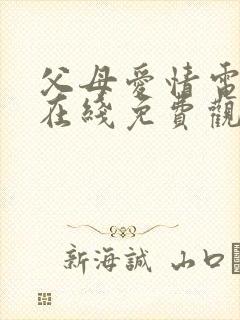 父母愛情電
在綫免費觀
新海誠 山口